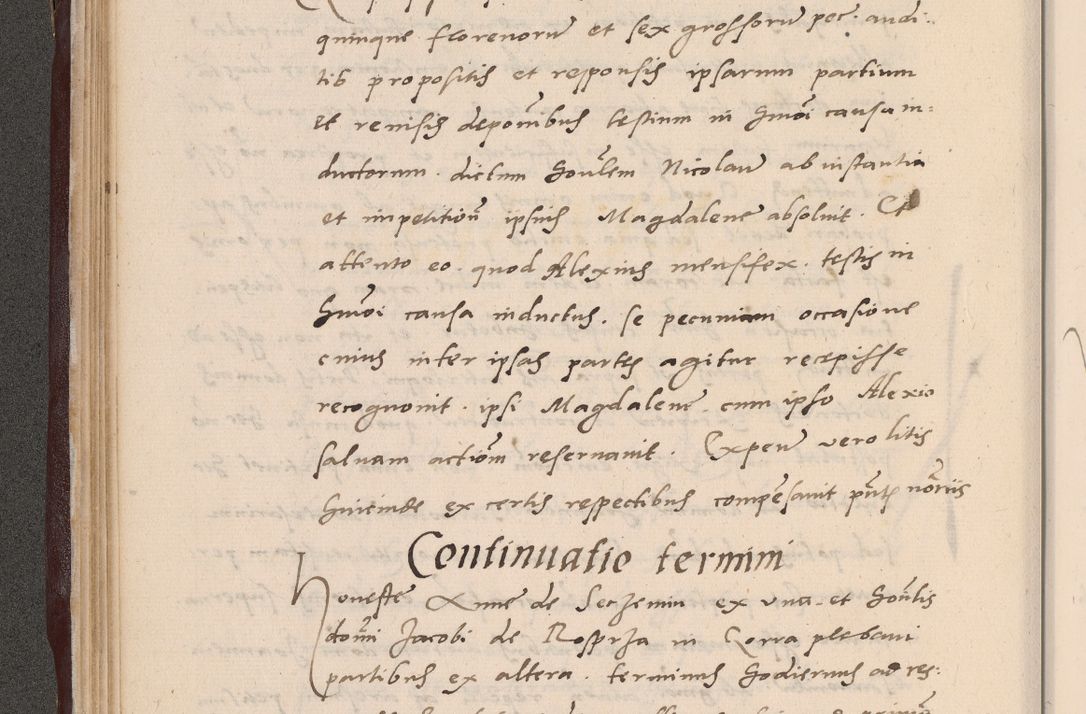 quinque florenorū et sex grossorū pec. audi-
tis propositis et responsis ipsarum partium
et revisis deponībus testium in hmōi causa in-
ductorum. dictum honīlem Nicolaū ab instantia
et impetitiōn ipsius Magdalene absolvit. Et
attento eo. quod Alexius mensifex. testis in
hmōi causa inductus. se pecuniam occasione
cuius inter ipsas partes agitur recepisse
recognovit. ipsi Magdalene. cum ipso Alexio
salvam actiōm reservavit. Expens vero litis
huiusmodi ex certis respectibus compēsavit
Continuatio termini
Honeste Anne de Seczemin ex una. et honīlis
domī Jacobi de in plebani
partibus ex altera. terminus hodiernus ad res-